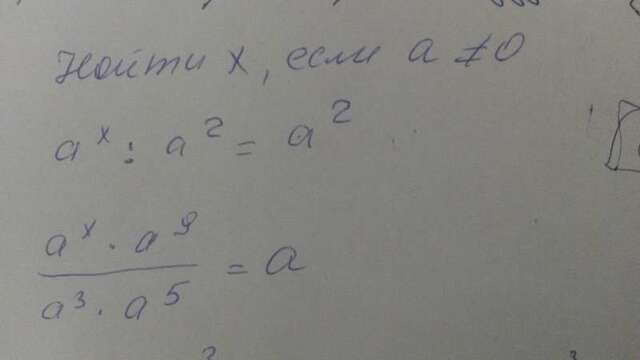 Найти x, если a ≠ 0
aˣ : a² = a²
aˣ · a⁹
a³ · a⁵ = a